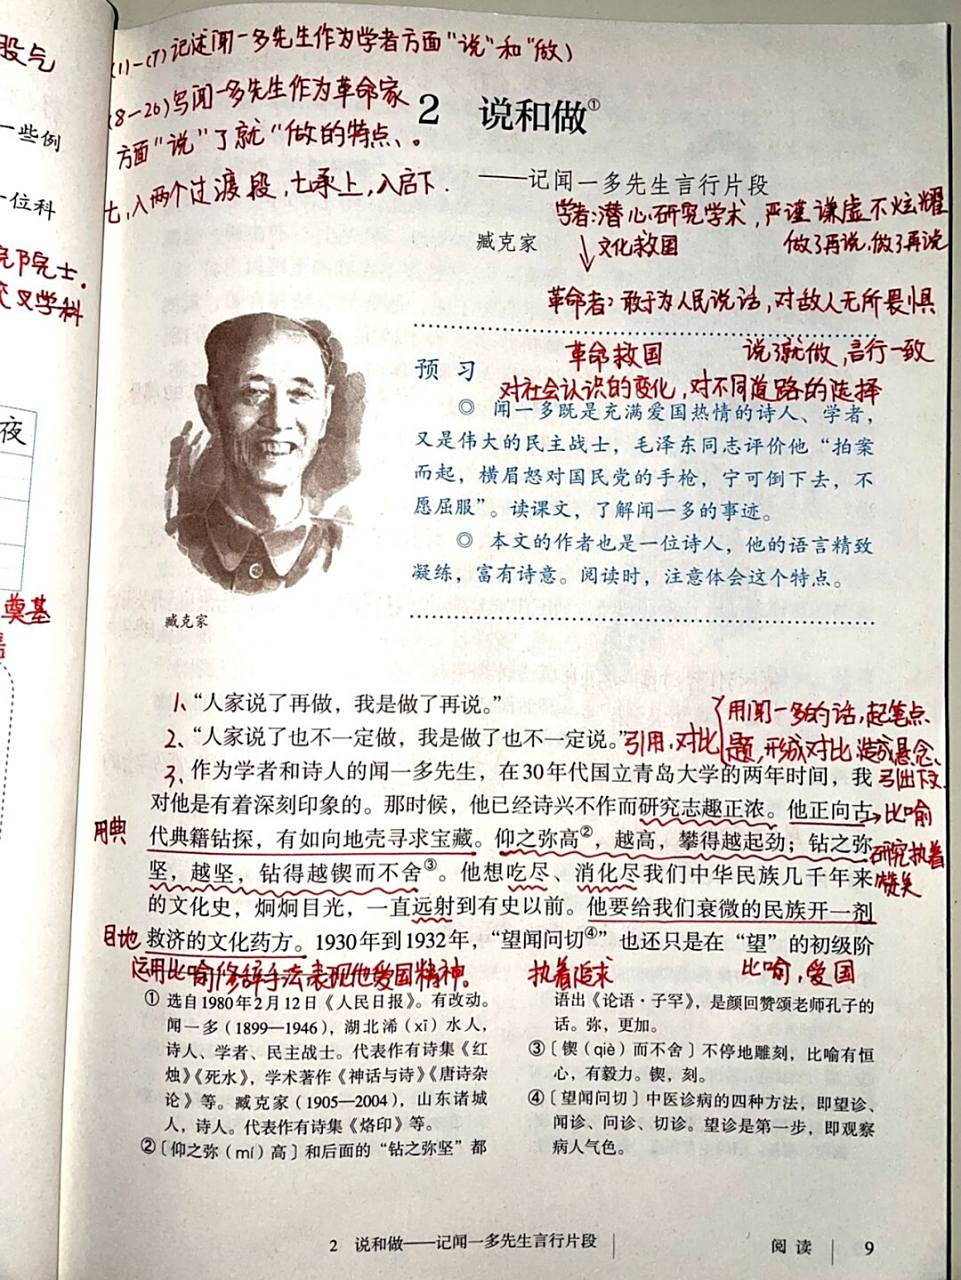 股气
一些例
一位科
院院士.
交叉学科
夜
奠基
(1)-(7)记述闻一多先生作为学者方面"说"和"做)
(8-20)写闻一多先生作为革命家
方面"说"了就"做的特点、。
七,八两个过渡段,七承上,八启下.
2 说和做①
——记闻一多先生言行片段
臧克家
学者:潜心研究学术,严谨谦虚不炫耀
文化救国 做了再说,做了再说
革命者:敢于为人民说话,对敌人无所畏惧
革命救国 说了就做,言行一致
对社会认识的变化,对不同道路的选择
预习
◎ 闻一多既是充满爱国热情的诗人、学者,
又是伟大的民主战士,毛泽东同志评价他“拍案
而起,横眉怒对国民党的手枪,宁可倒下去,不
愿屈服”。读课文,了解闻一多的事迹。
◎ 本文的作者也是一位诗人,他的语言精致
凝练,富有诗意。阅读时,注意体会这个特点。
臧克家
1、“人家说了再做,我是做了再说。”
2、“人家说了也不一定做,我是做了也不一定说。”
引用,对比
用闻一多的话,起笔点
题,形成对比,造成悬念、
引出下文.
3、作为学者和诗人的闻一多先生,在30年代国立青岛大学的两年时间,我
对他是有着深刻印象的。那时候,他已经诗兴不作而研究志趣正浓。他正向古
比喻
用典
代典籍钻探,有如向地壳寻求宝藏。仰之弥高②,越高,攀得越起劲;钻之弥
研究执着
坚,越坚,钻得越锲而不舍③。他想吃尽、消化尽我们中华民族几千年来
赞美
的文化史,炯炯目光,一直远射到有史以前。他要给我们衰微的民族开一剂
目地
救济的文化药方。1930年到1932年,“望闻问切④”也还只是在“望”的初级阶
运用比喻修辞手法表现他爱国精神。 执着追求 比喻,爱国
① 选自1980年2月12日《人民日报》。有改动。
闻一多(1899—1946),湖北浠(xī)水人,
诗人、学者、民主战士。代表作有诗集《红
烛》《死水》,学术著作《神话与诗》《唐诗杂
论》等。臧克家(1905—2004),山东诸城
人,诗人。代表作有诗集《烙印》等。
②〔仰之弥(mí)高〕和后面的“钻之弥坚”都
语出《论语·子罕》,是颜回赞颂老师孔子的
话。弥,更加。
③〔锲(qiè)而不舍〕不停地雕刻,比喻有恒
心,有毅力。锲,刻。
④〔望闻问切〕中医诊病的四种方法,即望诊、
闻诊、问诊、切诊。望诊是第一步,即观察
病人气色。
2 说和做——记闻一多先生言行片段
阅读 9